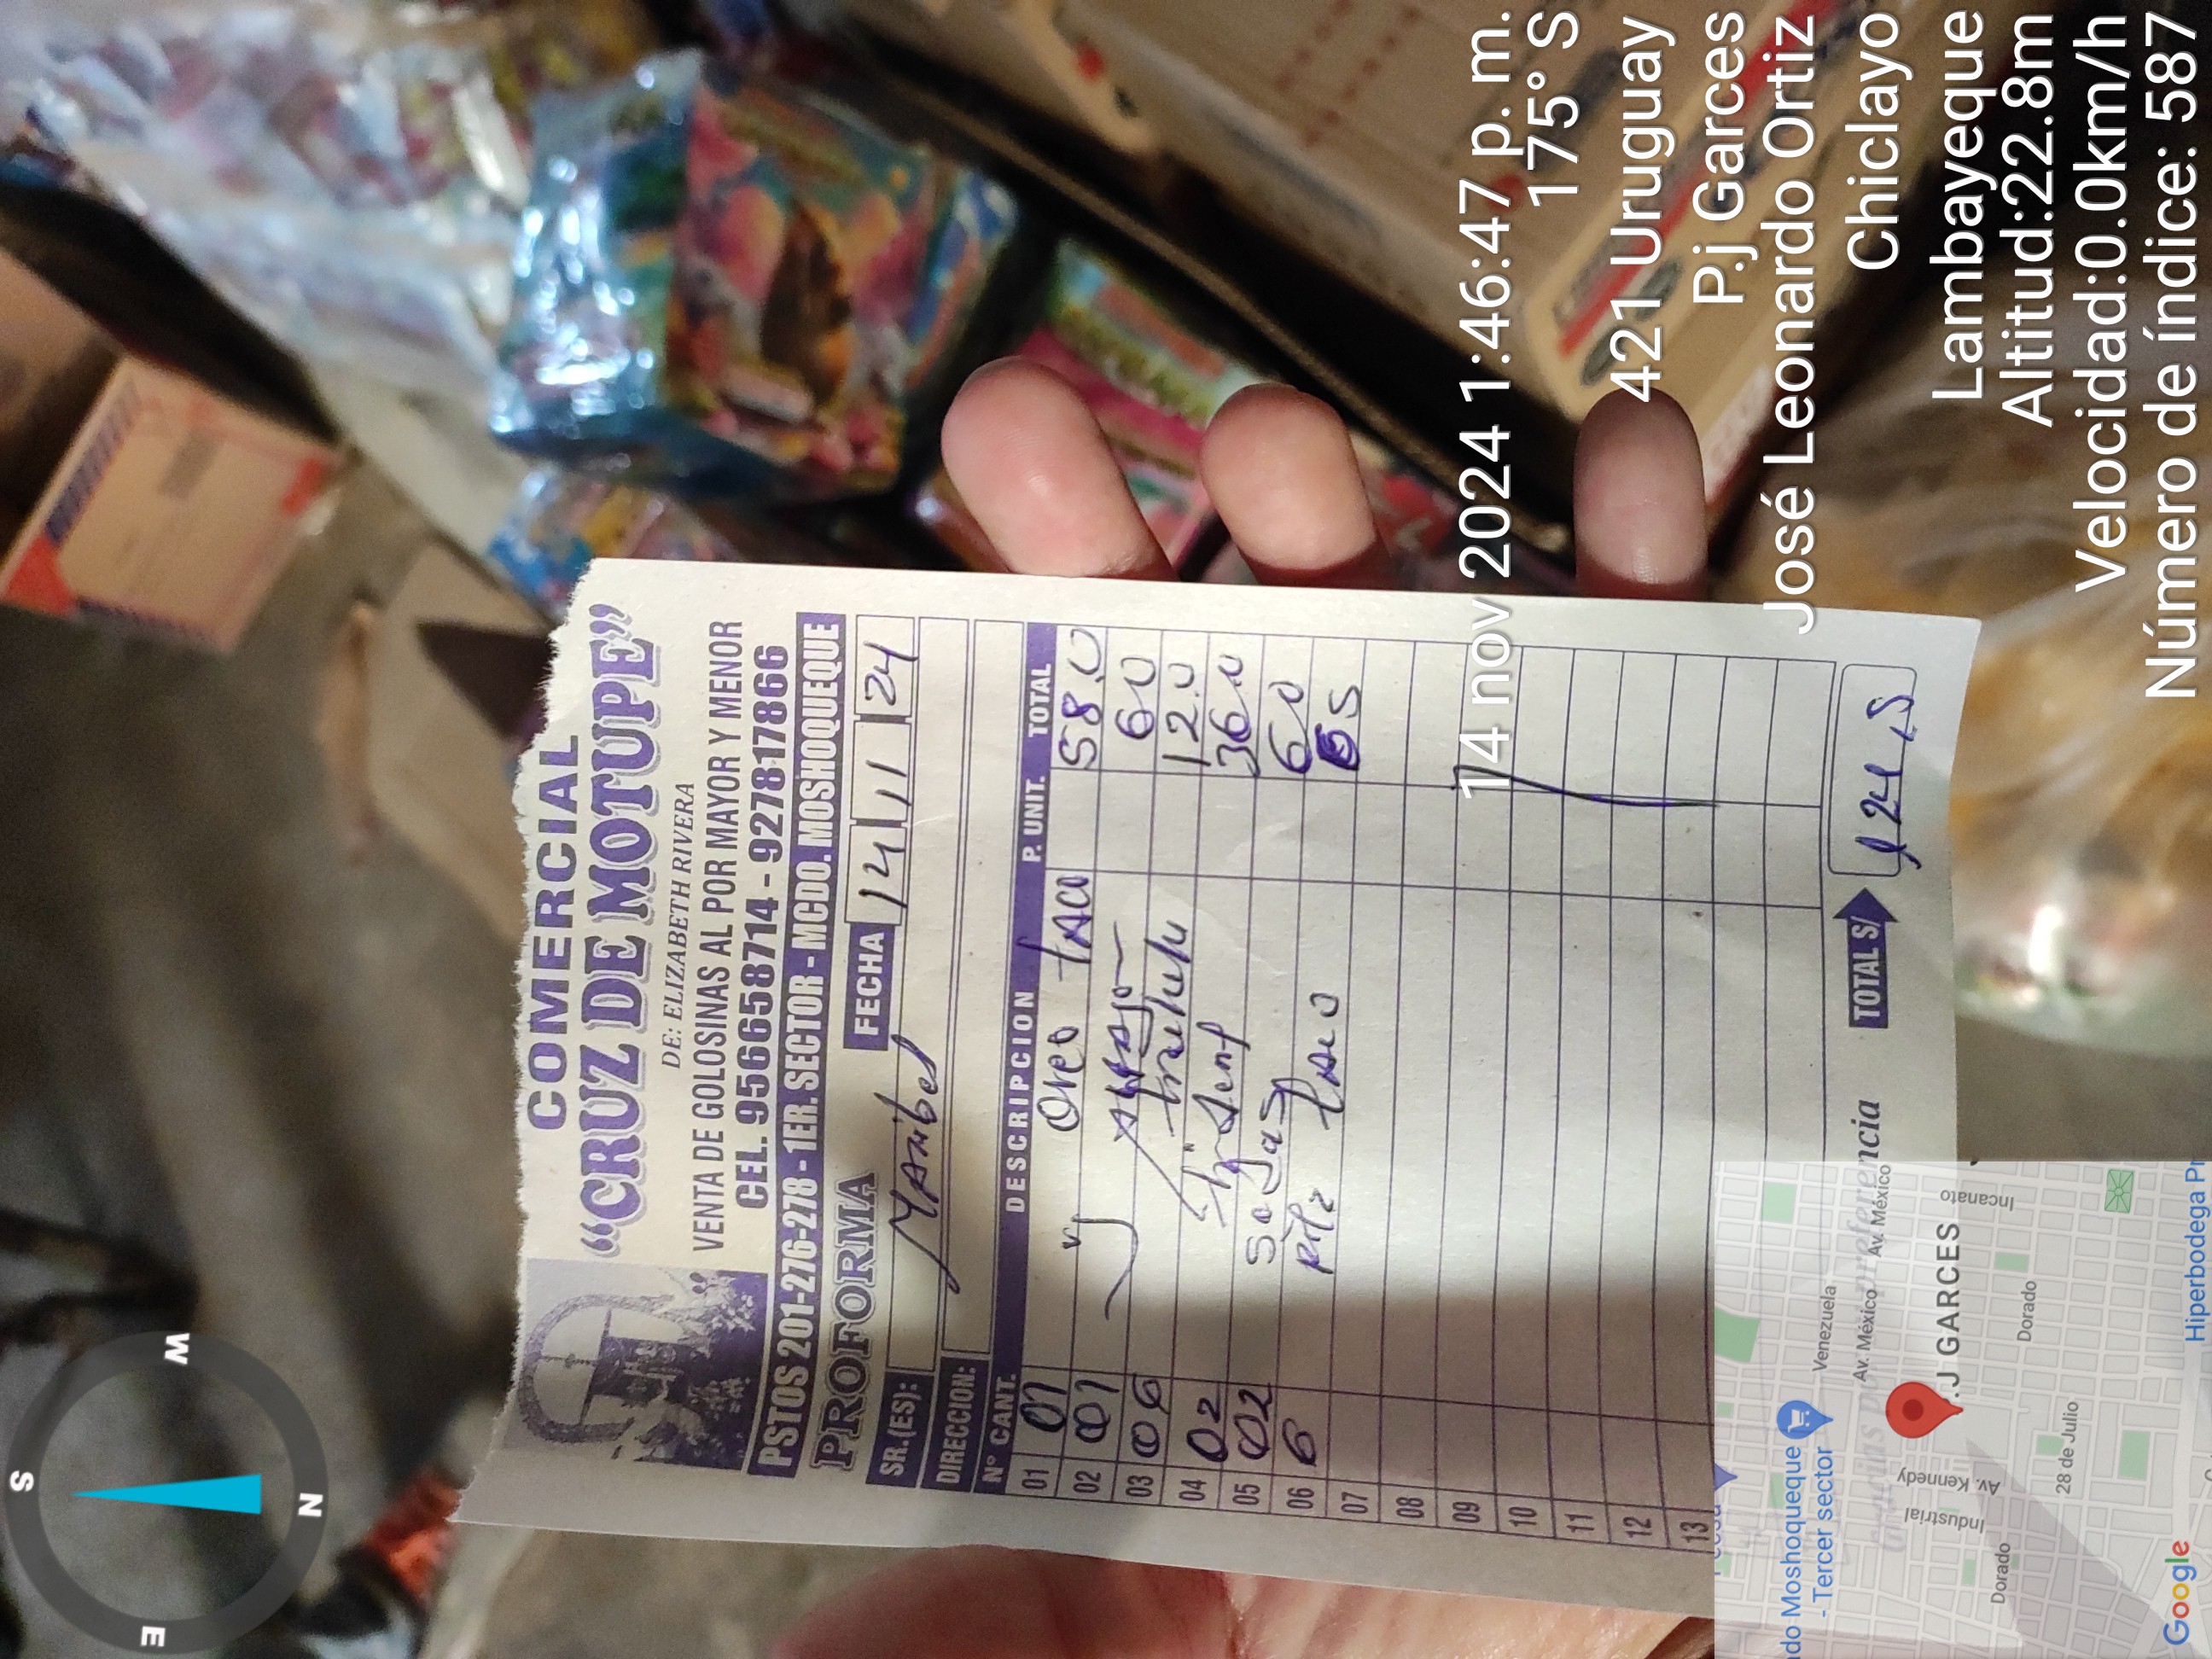 S
E
W
N
COMERCIAL
“CRUZ DE MOTUPE”
DE: ELIZABETH RIVERA
VENTA DE GOLOSINAS AL POR MAYOR Y MENOR
CEL. 956658714 - 927817866
PSTOS 201-276-278 - 1ER. SECTOR - MCDO. MOSHOQUEQUE
PROFORMA FECHA 14 11 24
SR.(ES): Maribel
DIRECCION:
N° CANT. DESCRIPCION P. UNIT. TOTAL
01 01 Oreo tACO 58.0
02 01 60
03 06 12.0
04 02 36.0
05 02 Sodas 60
06 6 Ritz tACO 65
07
08
09
10
11
12
13
Gracias preferencia TOTAL S/ 124.5
14 nov 2024 1:46:47 p. m.
175° S
421 Uruguay
P.j Garces
José Leonardo Ortiz
Chiclayo
Lambayeque
Altitud:22.8m
Velocidad:0.0km/h
Número de índice: 587
do Moshoqueque
- Tercer sector
Venezuela
Av. México
Av. México
Industrial
Av. Kennedy
.J GARCES
Incanato
Dorado
Dorado
28 de Julio
Google
Hiperbodega Pr